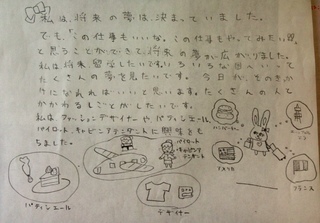 私は、将来の夢は、決まっていました。
でも、「この仕事もいいな。この仕事もやってみたい」
と思うことができて、将来の夢が広がりました。
私は将来留学したいです。いろいろな国へいって
たくさんの夢を見たいです。今日が、そのきっか
けになればいいと思います。たくさんの人と
かかわるしごとがしたいです。
私は、ファッションデザイナーや、パティシエール、
パイロット、キャビンアテンダントに興味をも
ちました。
パイロット
キャビンアテンダント
ハンバーガー
アメリカ
フランス
パティシエール
デザイナー